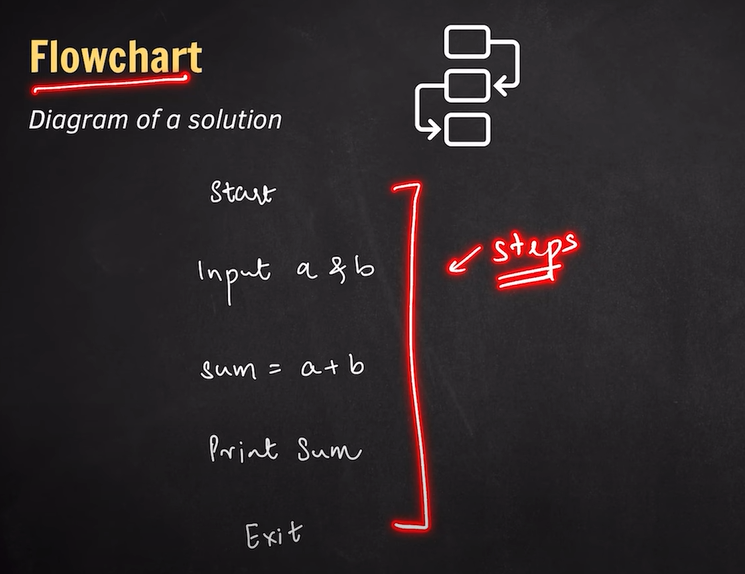 Flowchart
Diagram of a solution
Start
Input a & b
steps
sum = a + b
Print Sum
Exit